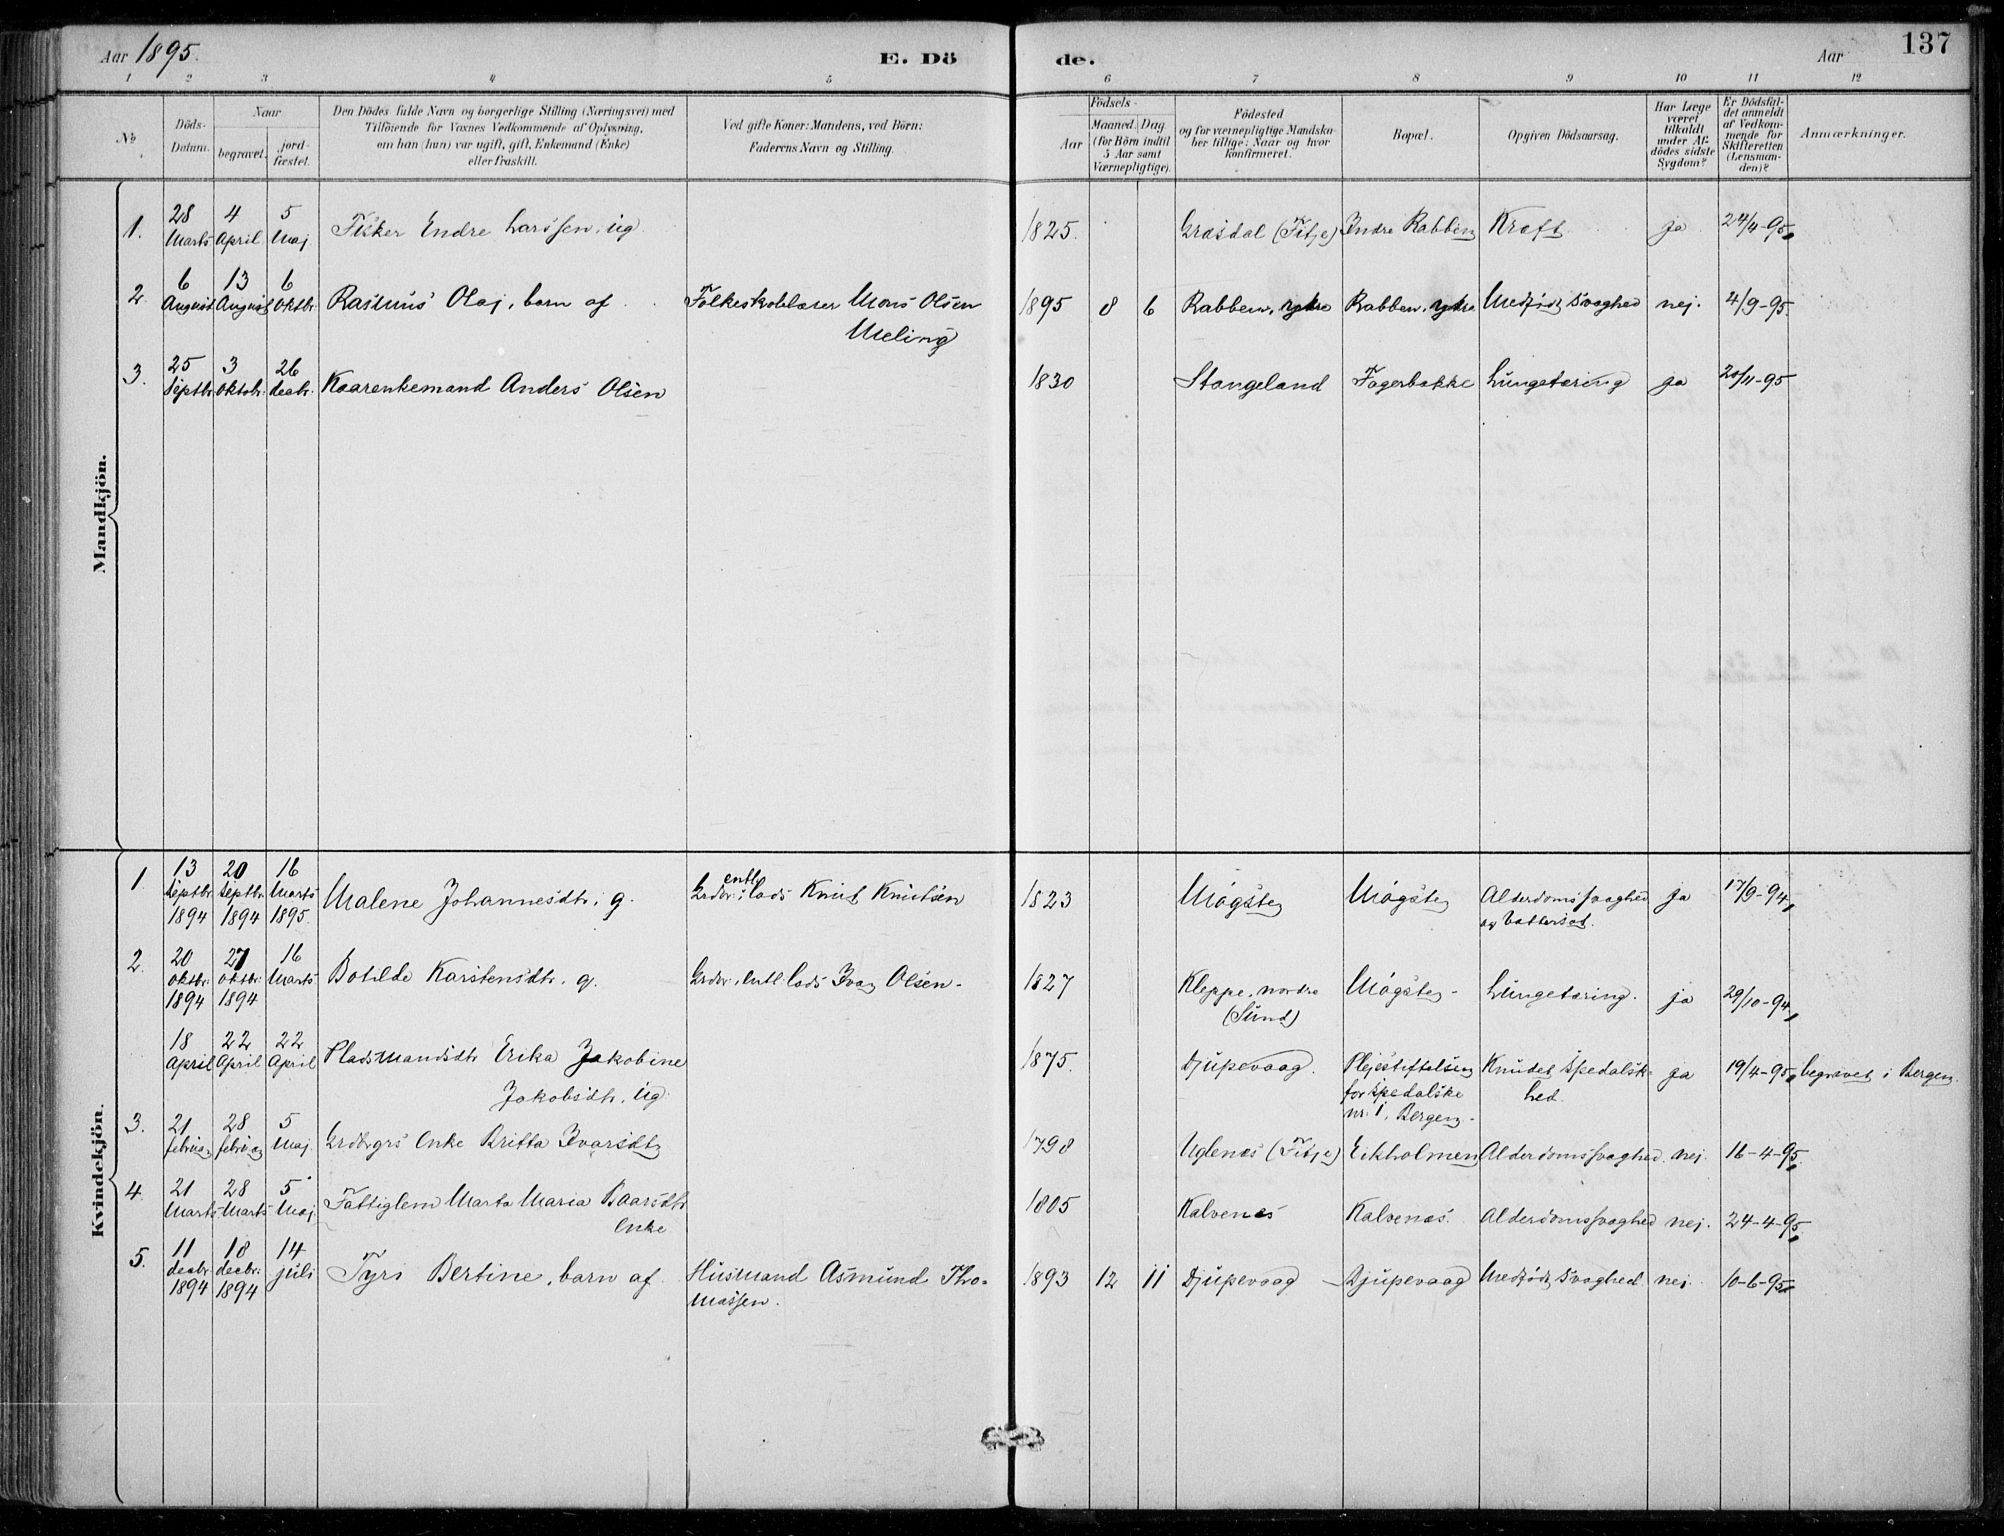 Aar 1895.
E. Dö
de.
Aar
137
1 2 3 4 5 6 7 8 9 10 11 12
No.
Döds-
Datum.
Naar
begravet.
jord-
fæstet.
Den Dödes fulde Navn og borgerlige Stilling (Næringsvei) med
Tilföiende for Voxnes Vedkommende af Oplysning,
om han (hun) var ugift, gift, Enkemand (Enke)
eller fraskilt.
Ved gifte Koner: Mandens, ved Börn:
Faderens Navn og Stilling.
Födsels-
Aar
Maaned.
Dag
(for Börn indtil
5 Aar samt
Værnepligtige).
Födested
og for værnepligtige Mandska-
ber tillige: Naar og hvor
konfirmeret.
Bopæl.
Opgiven Dödsaarsag.
Har Læge
været
tilkaldt
under Af-
dödes sidste
Sygdom?
Er Dödsfal-
det anmeldt
af Vedkom-
mende for
Skifteretten
(Lensman-
den)?
Anmærkninger.
Mandkjön.
1. 28 Marts 4 April 5 Maj Fisker Endre Larssen, ug. 1825. Græsdal (Fitje) Indre Rabben Kræft ja 24/4-95
2 6 August 13 August 6 Oktbr Rasmus Olaj, barn af Folkeskolelærer Mons Olsen
Meling
1895 8 6 Rabben, ytre Rabben, ytre Medfødt Svaghed nej. 4/9-95.
3. 25 Septbr 3 Oktobr. 26 decbr. Kaarenkemand Anders Olsen 1830 Stangeland Fagerbakke Lungetæring ja 20/11-95
Kvindekjön.
1. 13 Septbr 1894 20 Septbr. 1894 16 Marts 1895. Malene Johannesdtr. g. Grdbr. entl. Lods Knut Knutsen 1823 Møgster Møgster Alderdomssvaghed
og Vattersot.
ja 17/9-94
2. 20 Oktbr. 1894 27 Oktbr. 1894 16 Marts Botilde Karstensdtr. g. Grdbr. entl. Lods Ivar Olsen. 1827 Kleppe, nordre
(Sund)
Møgster Lungetæring. ja 29/10-94
18 April 22 April 22 April Pladsmandsdtr Erika Jakobine
Jakobsdtr. ug.
1875. Djupevaag. Plejestiftelsen
for spedalske
nr. 1, Bergen.
Knudet Spedalsk-
hed.
ja 19/4-95 begravet i Bergen.
3. 21 februar 28 februar 5 Maj. Grdbrgrs Enke Britta Ivarsdtr 1798 Uglenæs (Fitje) Eikholmen Alderdomssvaghed. nej. 16-4-95
4. 21 Marts 28 Marts 5 Maj Fattiglem Marta Maria Baarsdtr
Enke
1805 Kalvenæs Kalvenæs. Alderdomssvaghed nej. 24-4-95
5. 11 decbr. 1894 18 decbr. 1894 14 juli Tyri Bertine, barn af Husmand Asmund Tho-
massen.
1893 12 11 Djupevaag Djupevaag Medfødt Svaghed nej. 10-6-95